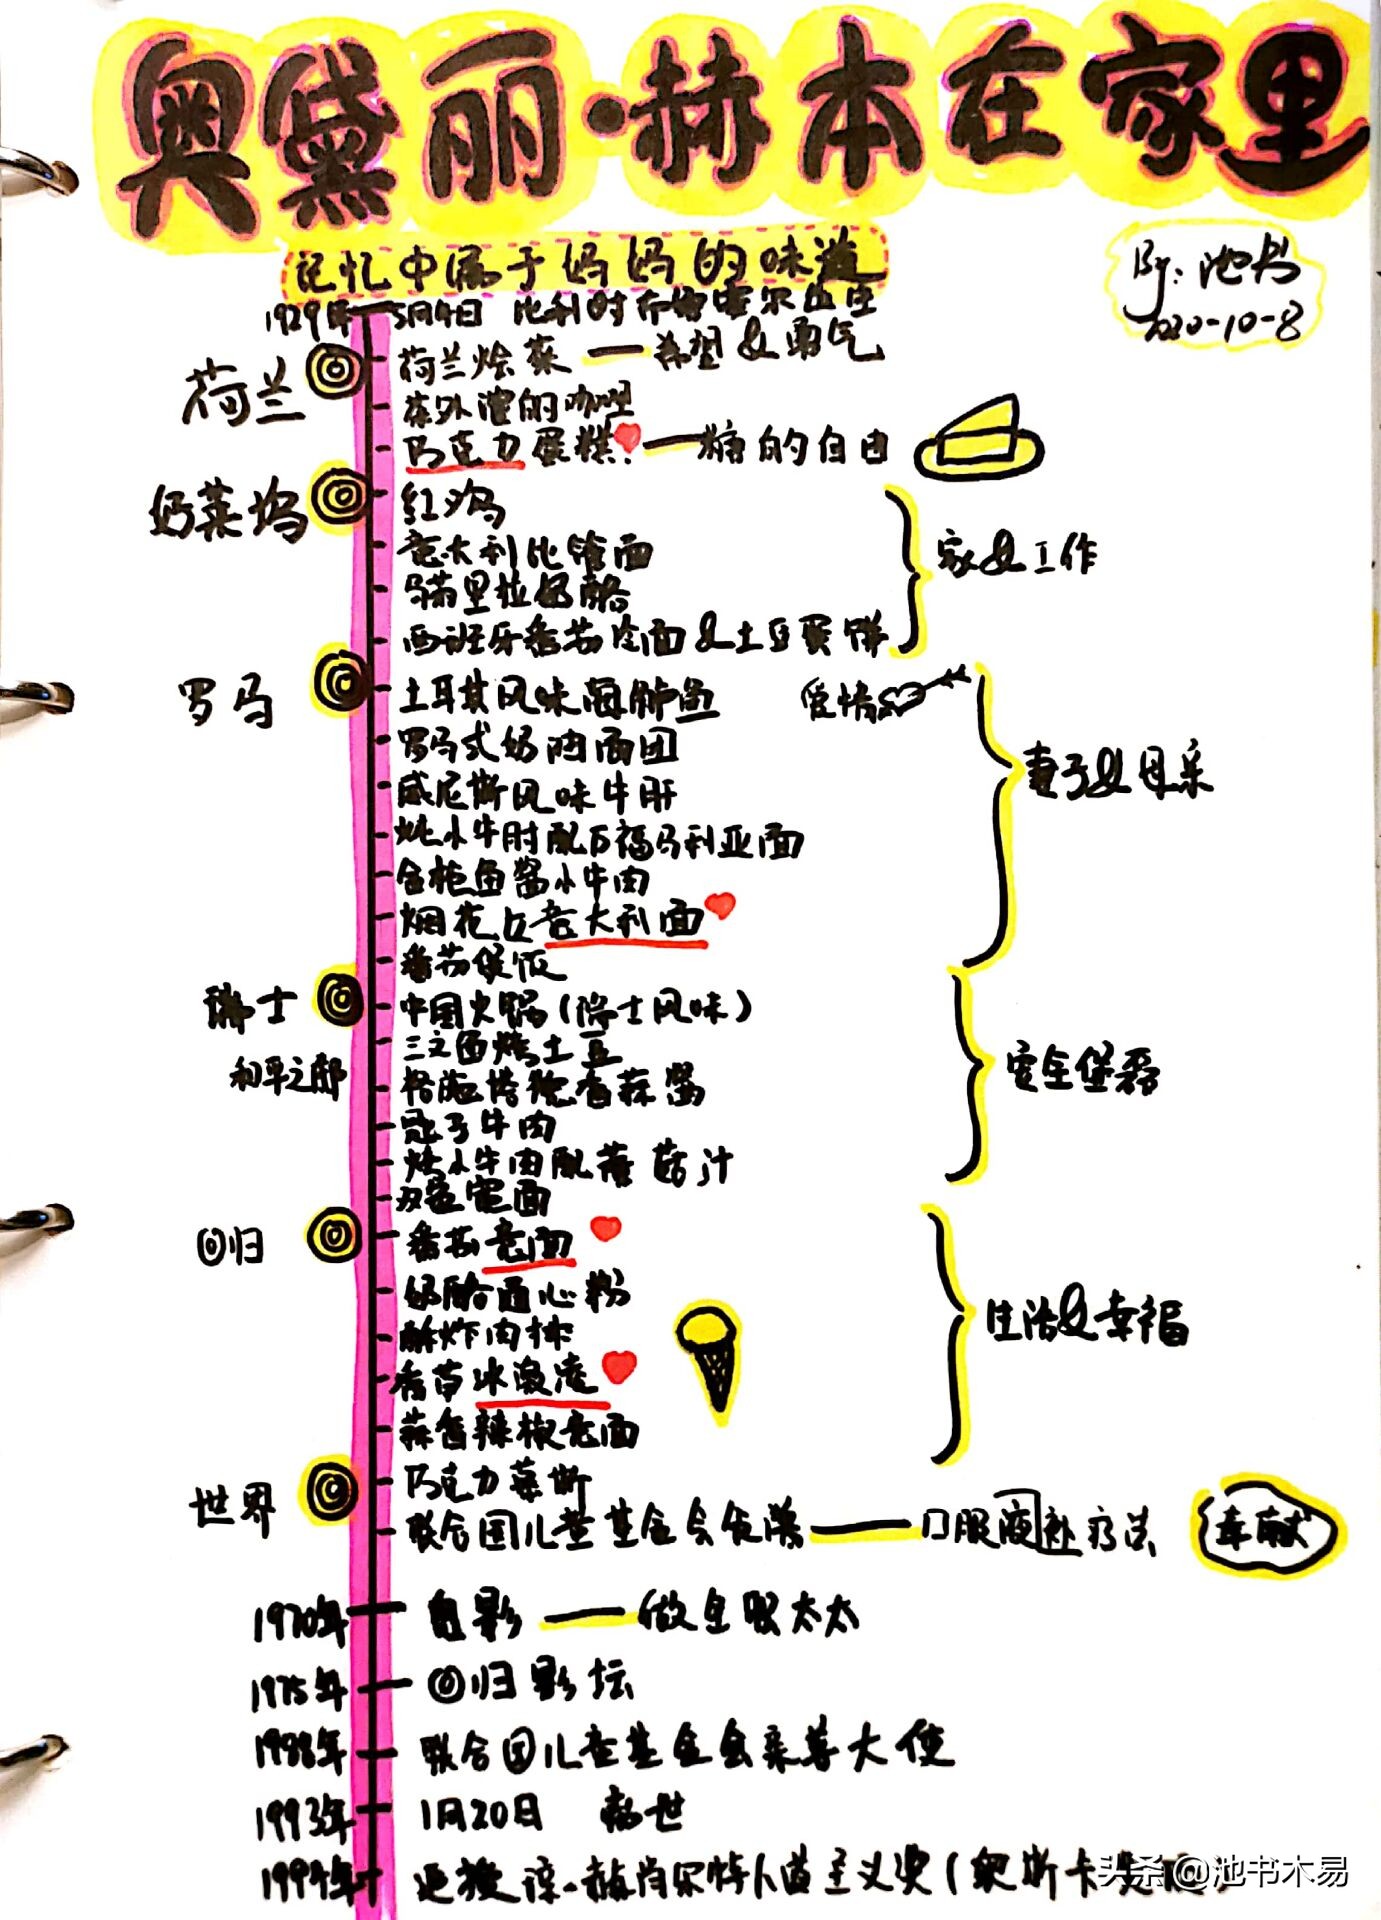 奥黛丽·赫本在家里
记忆中属于妈妈的味道
By:池书
2020-10-8
1929年 5月4日 比利时布鲁塞尔出生
荷兰
荷兰烩菜 — 希望&勇气
巧克力蛋糕! — 糖的自由
好莱坞
红鸡
意大利比管面
马苏里拉奶酪
西班牙番茄冷面&土豆蛋饼
家&工作
罗马
土耳其风味海鲈鱼
爱情
罗马式奶油面团
威尼斯风味牛肝
炖小牛肘配百福马利亚面
金枪鱼酱小牛肉
烟花女意大利面
番茄煲饭
妻子&母亲
瑞士
和平之邸
中国火锅(瑞士风味)
三文鱼烤土豆
格施塔德香蒜酱
骰子牛肉
炖小牛肉配蘑菇汁
安全堡垒
回归
番茄意面
奶酪通心粉
酥炸肉排
香草冰激凌
蒜香辣椒意面
生活&幸福
世界
巧克力慕斯
联合国儿童基金会 — 口服液补疗法
奉献
1970年 电影 — 做全职太太
1975年 回归影坛
1988年 联合国儿童基金会亲善大使
1993年 1月20日 病世
1994年 追授 赫肖尔特人道主义奖(奥斯卡
头条@池书木易